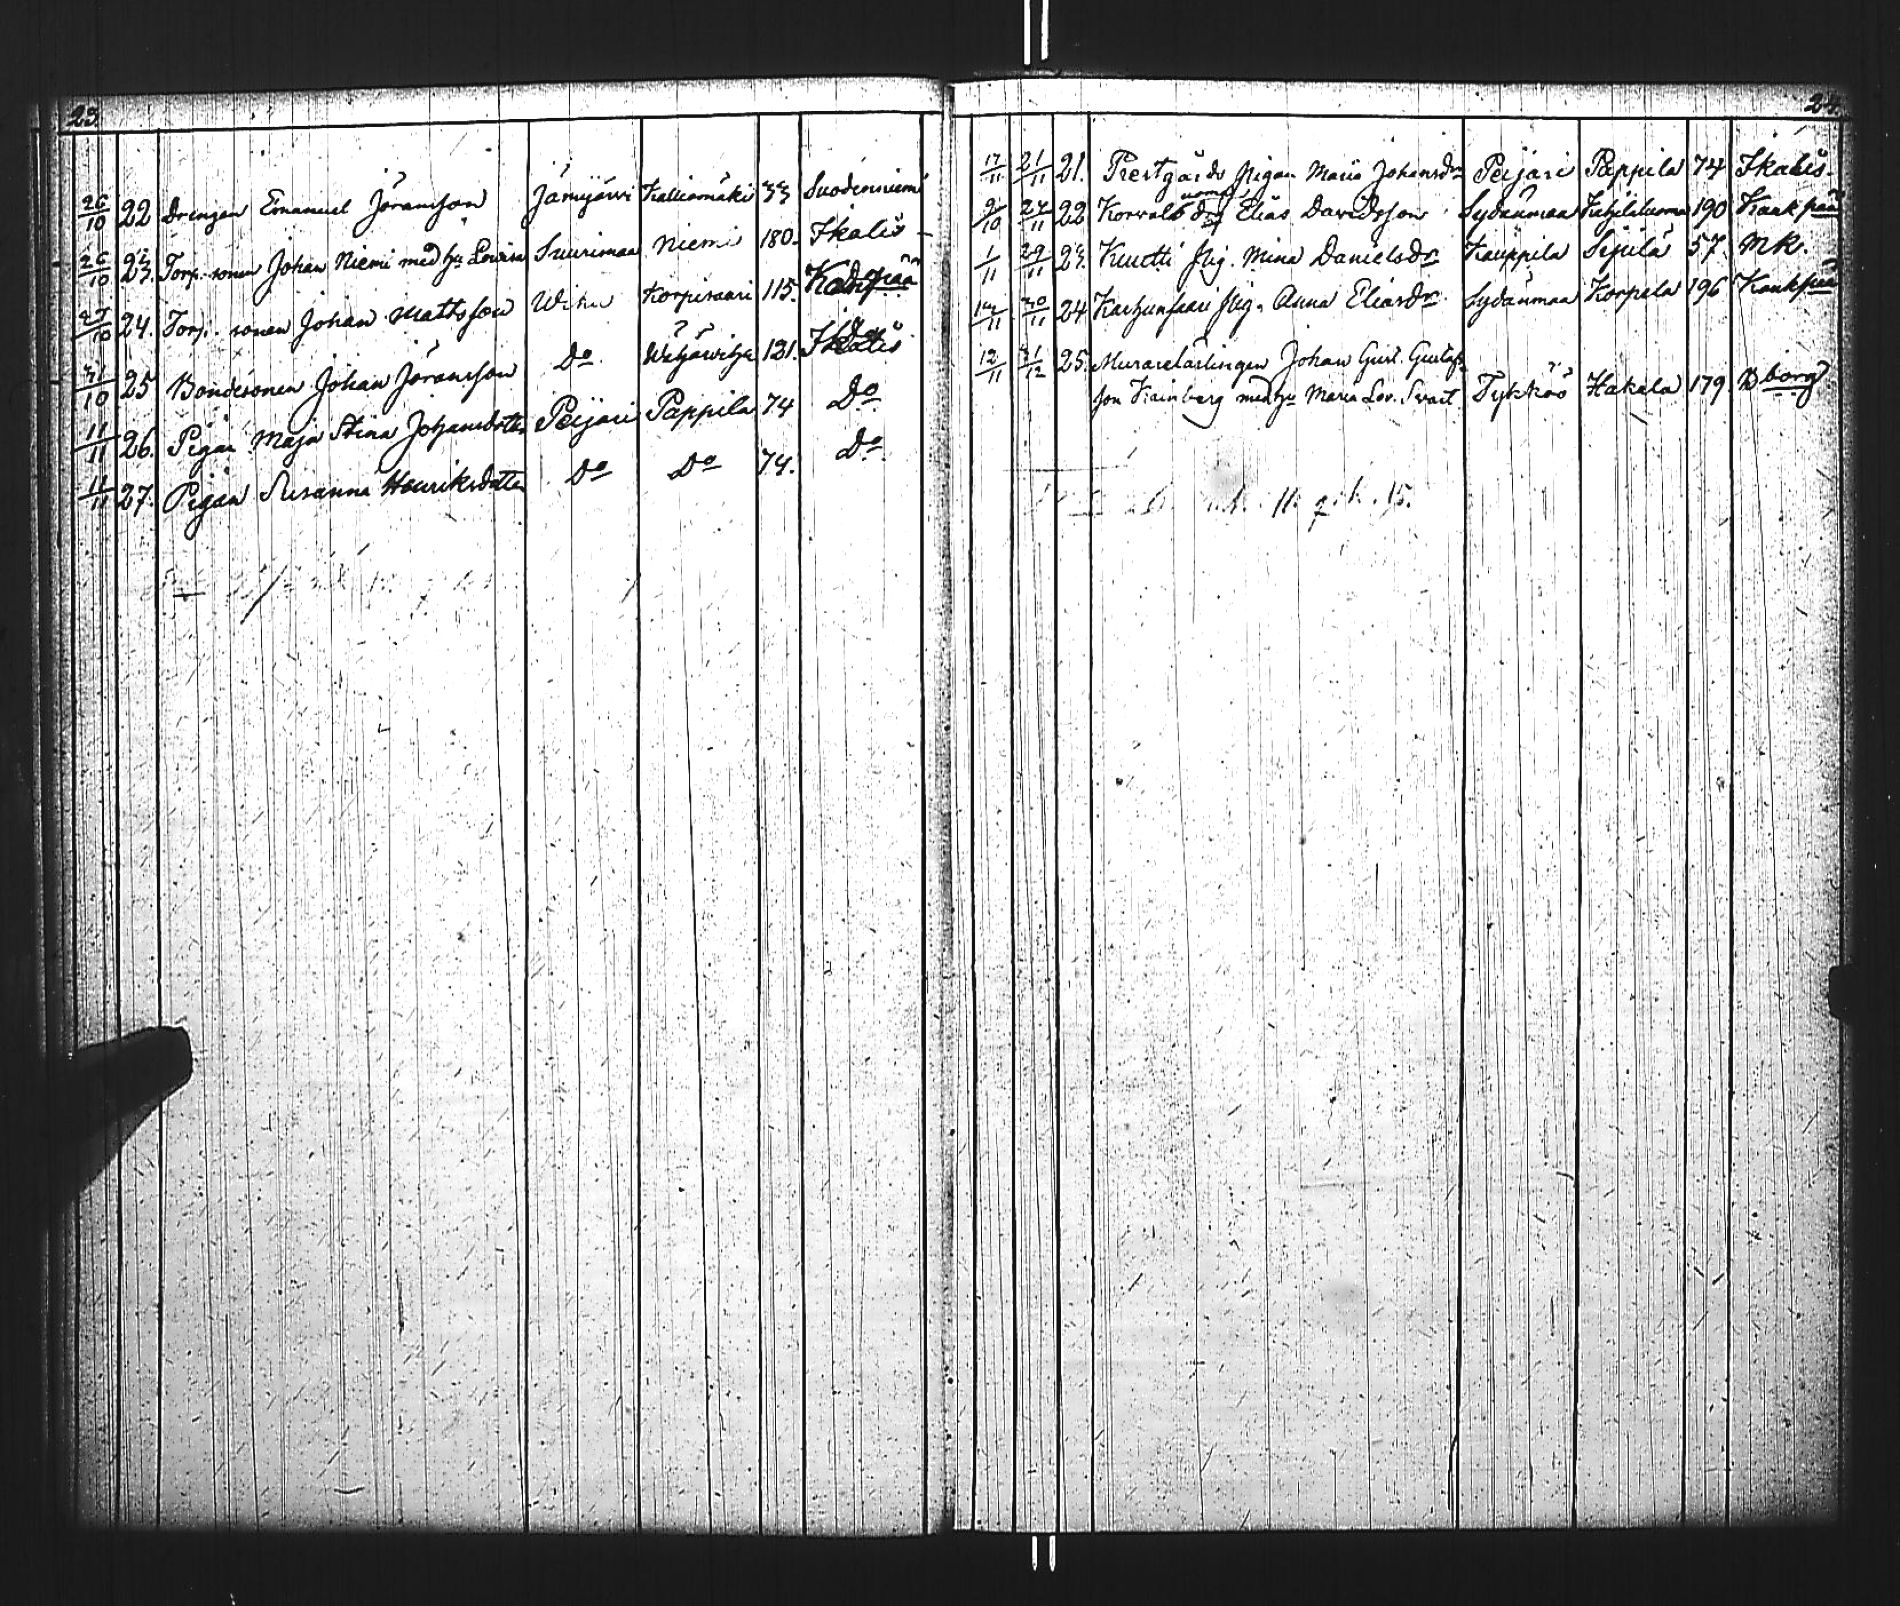 23.
26/10 22 Drengen Emanuel Jöransson Jämijärvi Kalliomäki 33 Suodenniemi
26/10 23. Torp. sonen Johan Niemi med hu Lovisa Suurimaa Niemi 180. Ikalis
27/10 24. Torp. sonen Johan Mattsson Wihu Korpisaari 115.
31/10 25 Bondesonen Johan Jöransson Do 121. Ikalis
11/11 26. Pigan Maja Stina Johansdotter Peijari Pappila 74 Do
11/11 27. Pigan Susanna Henriksdotter Do Do 74. Do
24.
17/11 21/11 21. Prestgårds pigan Maria Johansdr Peijari Pappila 74 Ikalis.
9/10 24/11 22 Elias Davidsson Sydänmaa 190 Kankpää
1/11 29/11 23. Knutti pig. Mina Danielsdr Kauppila Sijilä 57. MK.
14/11 30/11 24 Karhunsaari pig. Anna Eliasdr Sydänmaa Korpela 196 Kankpää
12/11 31/12 25. Murarelärlingen Johan Gust. Gustafs-
son Kainberg med hu Maria Lov. Svart Tykköö Hakala 179 Bborg
11. q.k. 15.